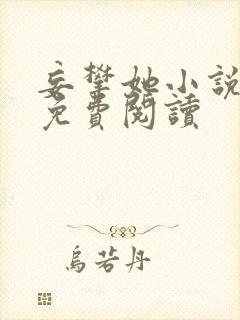 妄攀她小說
免費閱讀
烏若丹